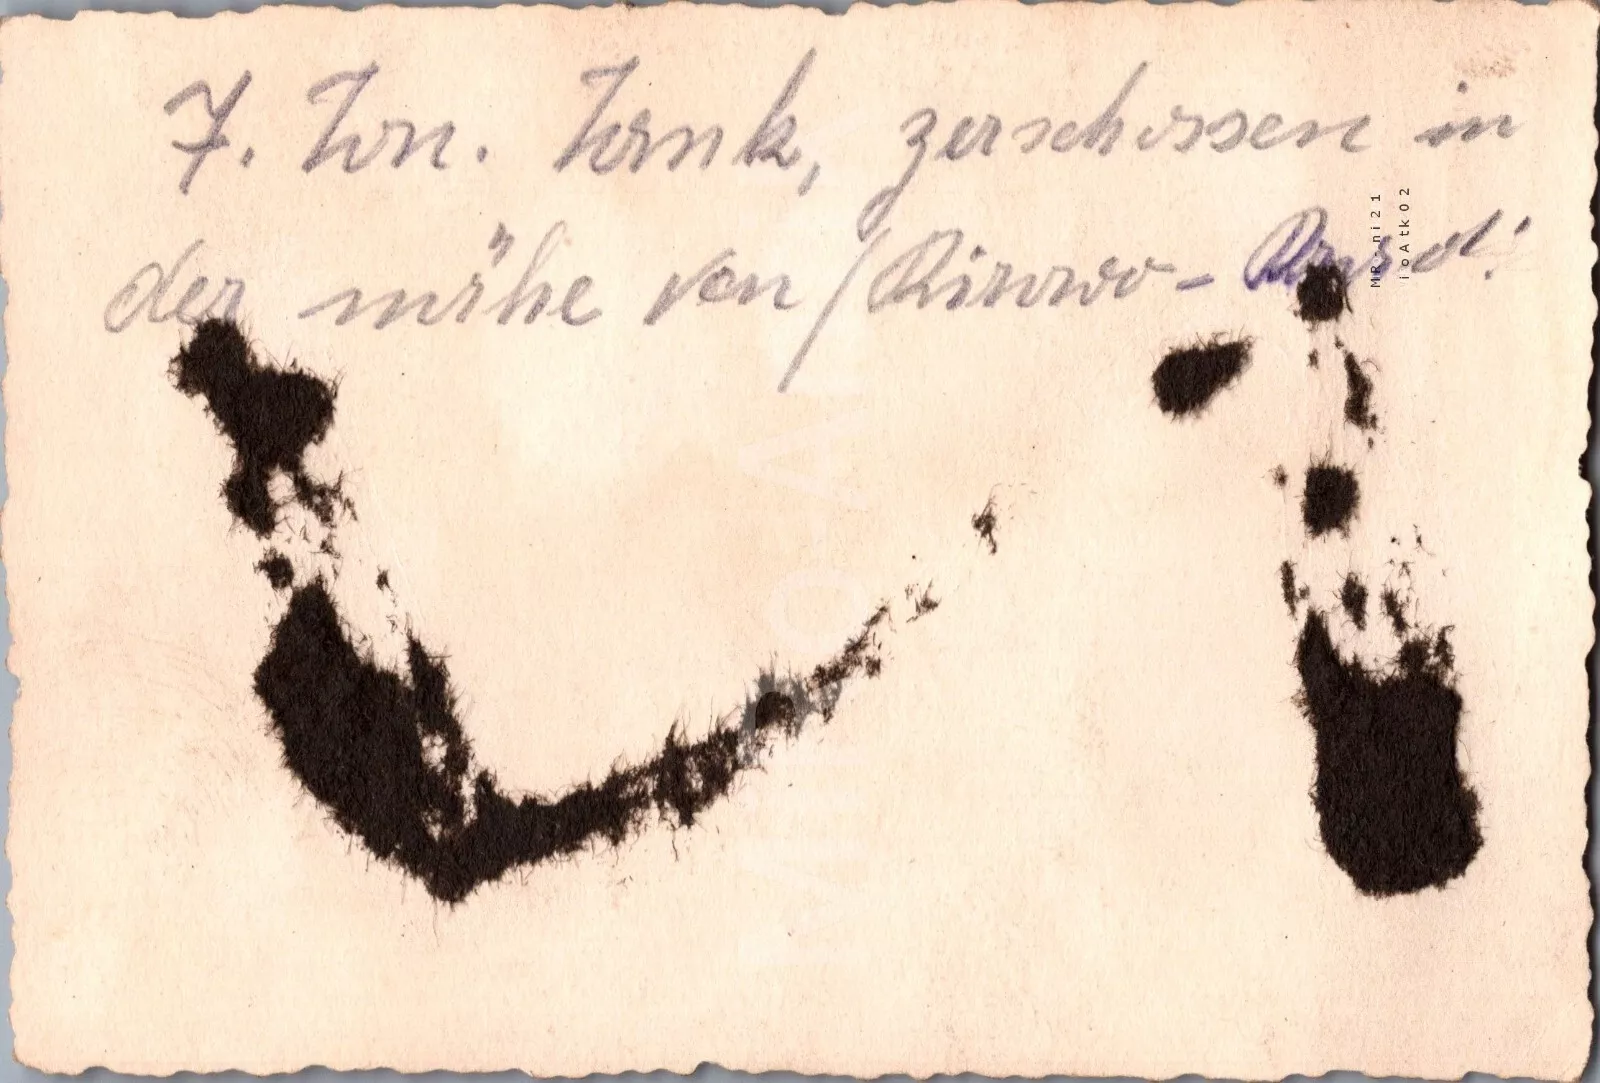 7. Ton. Tank, zerschossen in
der nähe von /Rirowo-
MR-ni21
ioAtk02